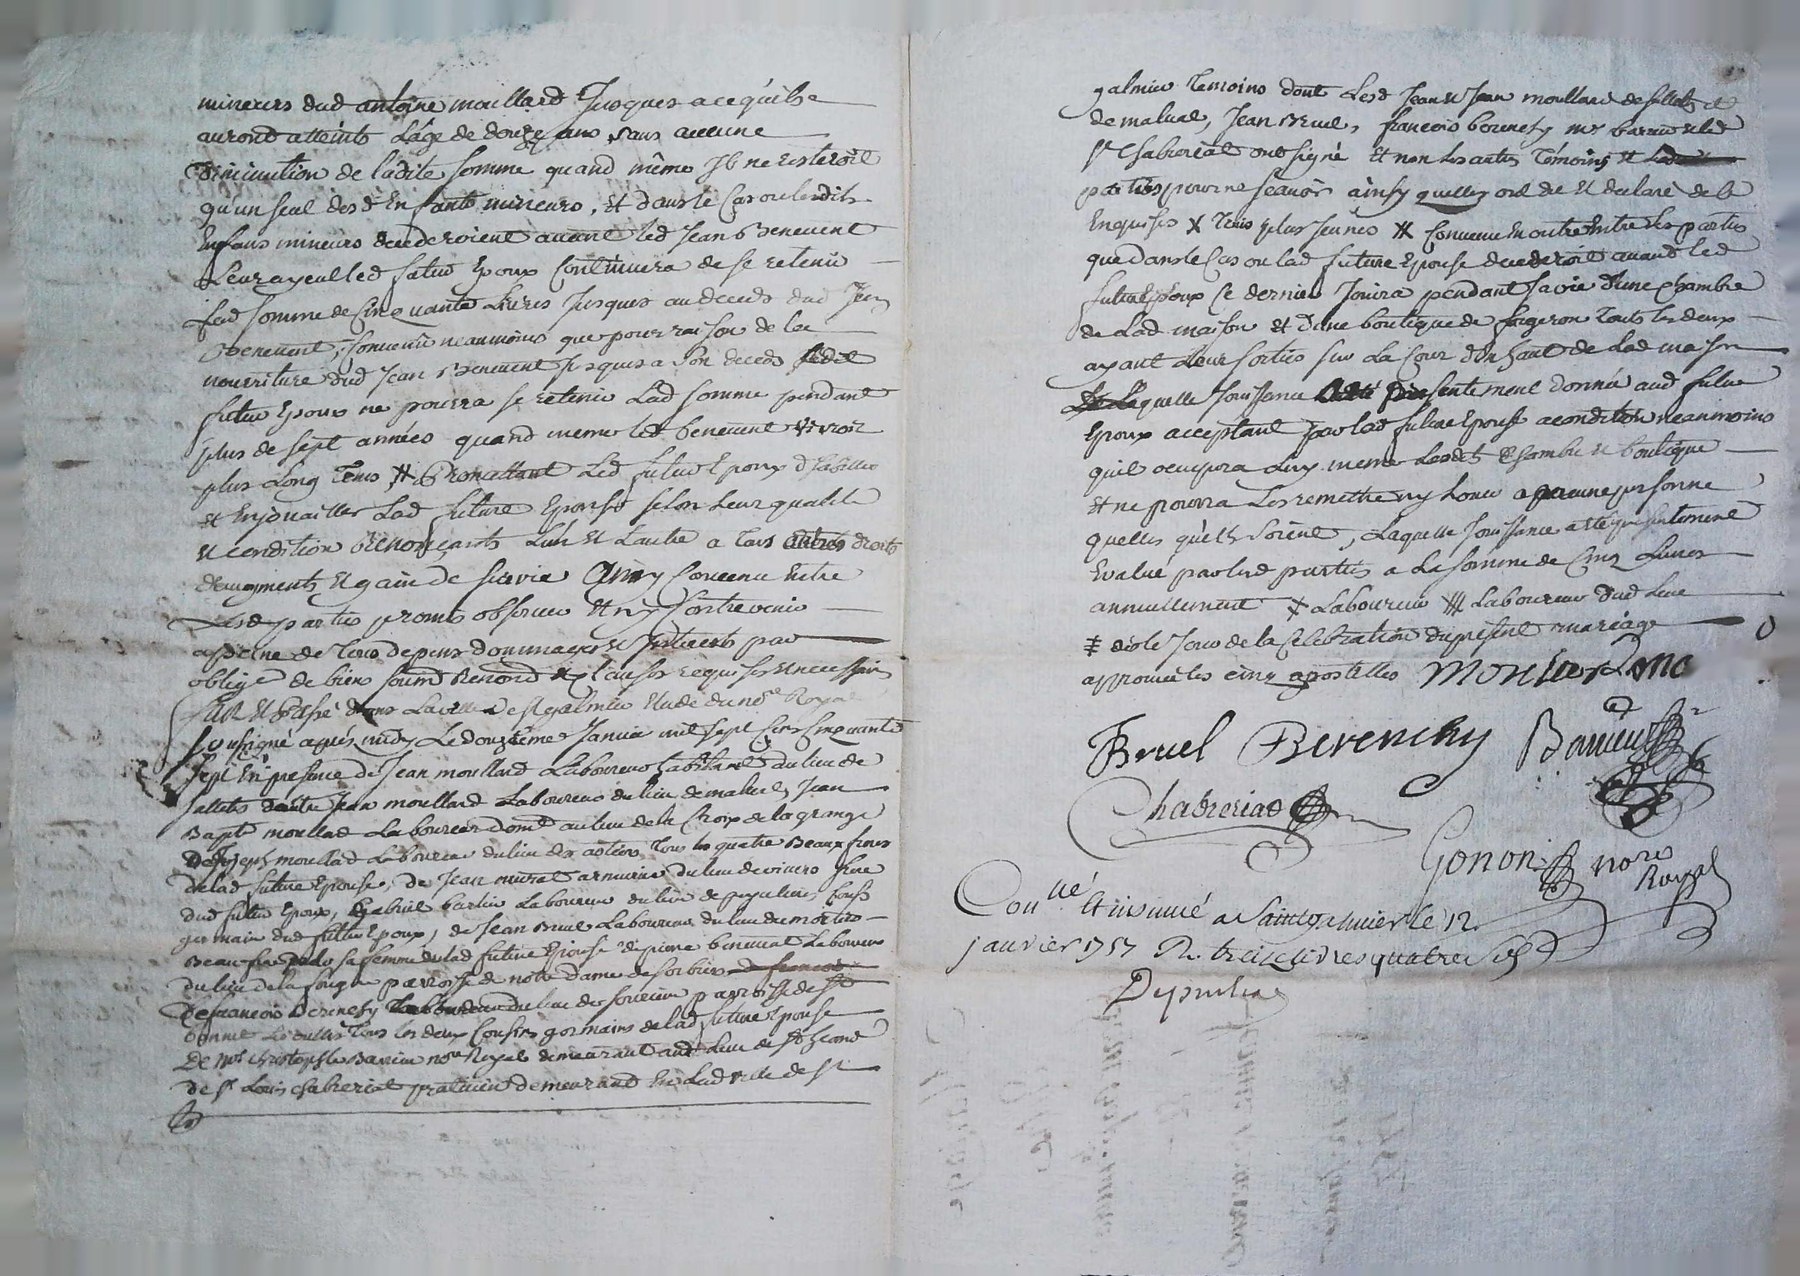 mineurs dud antoine moullard Jusques a ce qu'ils
auront atteints L'âge de douze ans sans aucune
Diminution de ladite somme quand même Il ne resteroit
qu'un seul desd Enfants mineurs, Et dans le Cas ou lesdits
Enfans mineurs decederoient avant led Jean Benevent
Leur ayeul led futur Epoux Continuera de se retenir
Lad somme de Cinquante Livres Jusques au deceds dud Jean
Benevent, Convenu neanmoins que pour raison de la
nourriture dud Jean Benevent Jusques a son deceds ledit
futur Epoux ne pourra se retenir Lad somme pendant
plus de sept années quand meme led benevent vivroit
plus Long tems, # Promettant Led futur Epoux d'habiller
et Enjouailler Lad future Epouse selon Leur qualité
et condition Renonçants L'un Et L'autre a tous autres droits
d'augments Et gain de survie Ainsy Convenu Entre
Lesd parties promis observer Et n'y Contrevenir
a peine de tous depens dommages et Interests par
oblige de biens soumis Renond & clauses requises et necessaires
fait Et Passé dans La ville de St galmier Etude du nore Royal
soussigné aprés midy Le douzieme Janvier mil sept Cens Cinquante
sept En presence de Jean moullard Laboureur habitant du lieu de
fallets d'autre Jean moullard Laboureur du lieu de malval, Jean
Bapte moullad Laboureur domt au lieu de la Croix de la grange
De Joseph moullad Laboureur du lieu des tous les quatre Beaux freres
de lad future Epouse, de Jean armurier du lieu de frere
dud futur Epoux, gabriel barlier Laboureur du lieu de Cousin
germain dud futur Epoux, de Jean Bruel Laboureur du lieu du
Beau frere de lad future Epouse de pierre benevent Laboureur
du lieu de la parroisse de notre dame de sorbier
De francois Berenchy du lieu de parroisse de St
bonnet Les oulles tous les deux Cousins germains de lad future Epouse
De Mre Christophle Barrieu nore Royal demeurant aud Lieu de St heand
de Sr Louis Chabreriat praticien demeurant En Lad ville de St
galmier temoins dont Lesd Jean & Jean moullard de fallets et
de malval, Jean Bruel, francois berenchy, me barrieu & led
Sr Chabreriat ont signé Et non Les autres Témoins Et
parties pour ne scavoir ainsy qu'elles ont dit Et declaré de ce
Enquises X trois plus jeunes # Convenu En outre Entre les parties
que dans le Cas ou lad future Epouse decederoit avant led
futur Epoux Ce dernier Jouira pendant sa vie d'une Chambre
de Lad maison Et d'une boutique de forgeron touts les deux
ayant Leur sorties sur La Cour d'En haut de Lad maison
Laquelle Jouissance a été presentement donnée aud futur
Epoux acceptant par lad future Epouse a condition neanmoins
qu'il occupera Luy meme Lesdts Chambre et boutique
Et ne pourra Les remettre ny Louer a aucune personne
quelles qu'elles soient, Laquelle Jouissance a été presentement
Evalué par lesd parties a La somme de Cinq Livres
annuellement X Laboureur # Laboureur dud Lieu
‡ dés le Jour de la Celebration du present mariage
approuvé les cinq apostilles Moullard
Bruel Berenchy Barrieu
Chabreriat
Gonon nore
Royal
Conlé Et insinué a Saint galmier le 12
janvier 1757 R. treize livres quatre sols